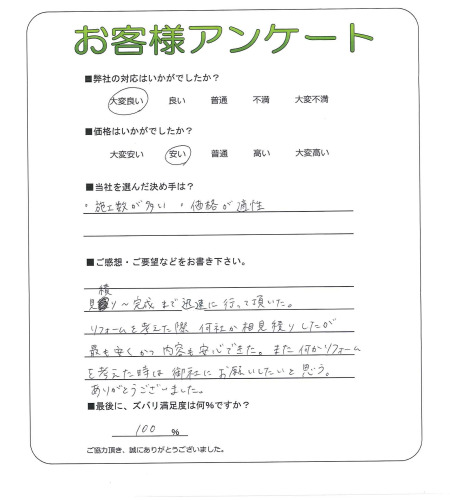 お客様アンケート
■弊社の対応はいかがでしたか？
大変良い 良い 普通 不満 大変不満
■価格はいかがでしたか？
大変安い 安い 普通 高い 大変高い
■当社を選んだ決め手は？
・施工数が多い ・価格が適性
■ご感想・ご要望などをお書き下さい。
見積り～完成まで迅速に行って頂いた。
リフォームを考えた際 何社か相見積りしたが
最も安くかつ内容も安心できた。また何かリフォーム
を考えた時は御社にお願いしたいと思う。
ありがとうございました。
■最後に、ズバリ満足度は何％ですか？
100 ％
ご協力頂き、誠にありがとうございました。